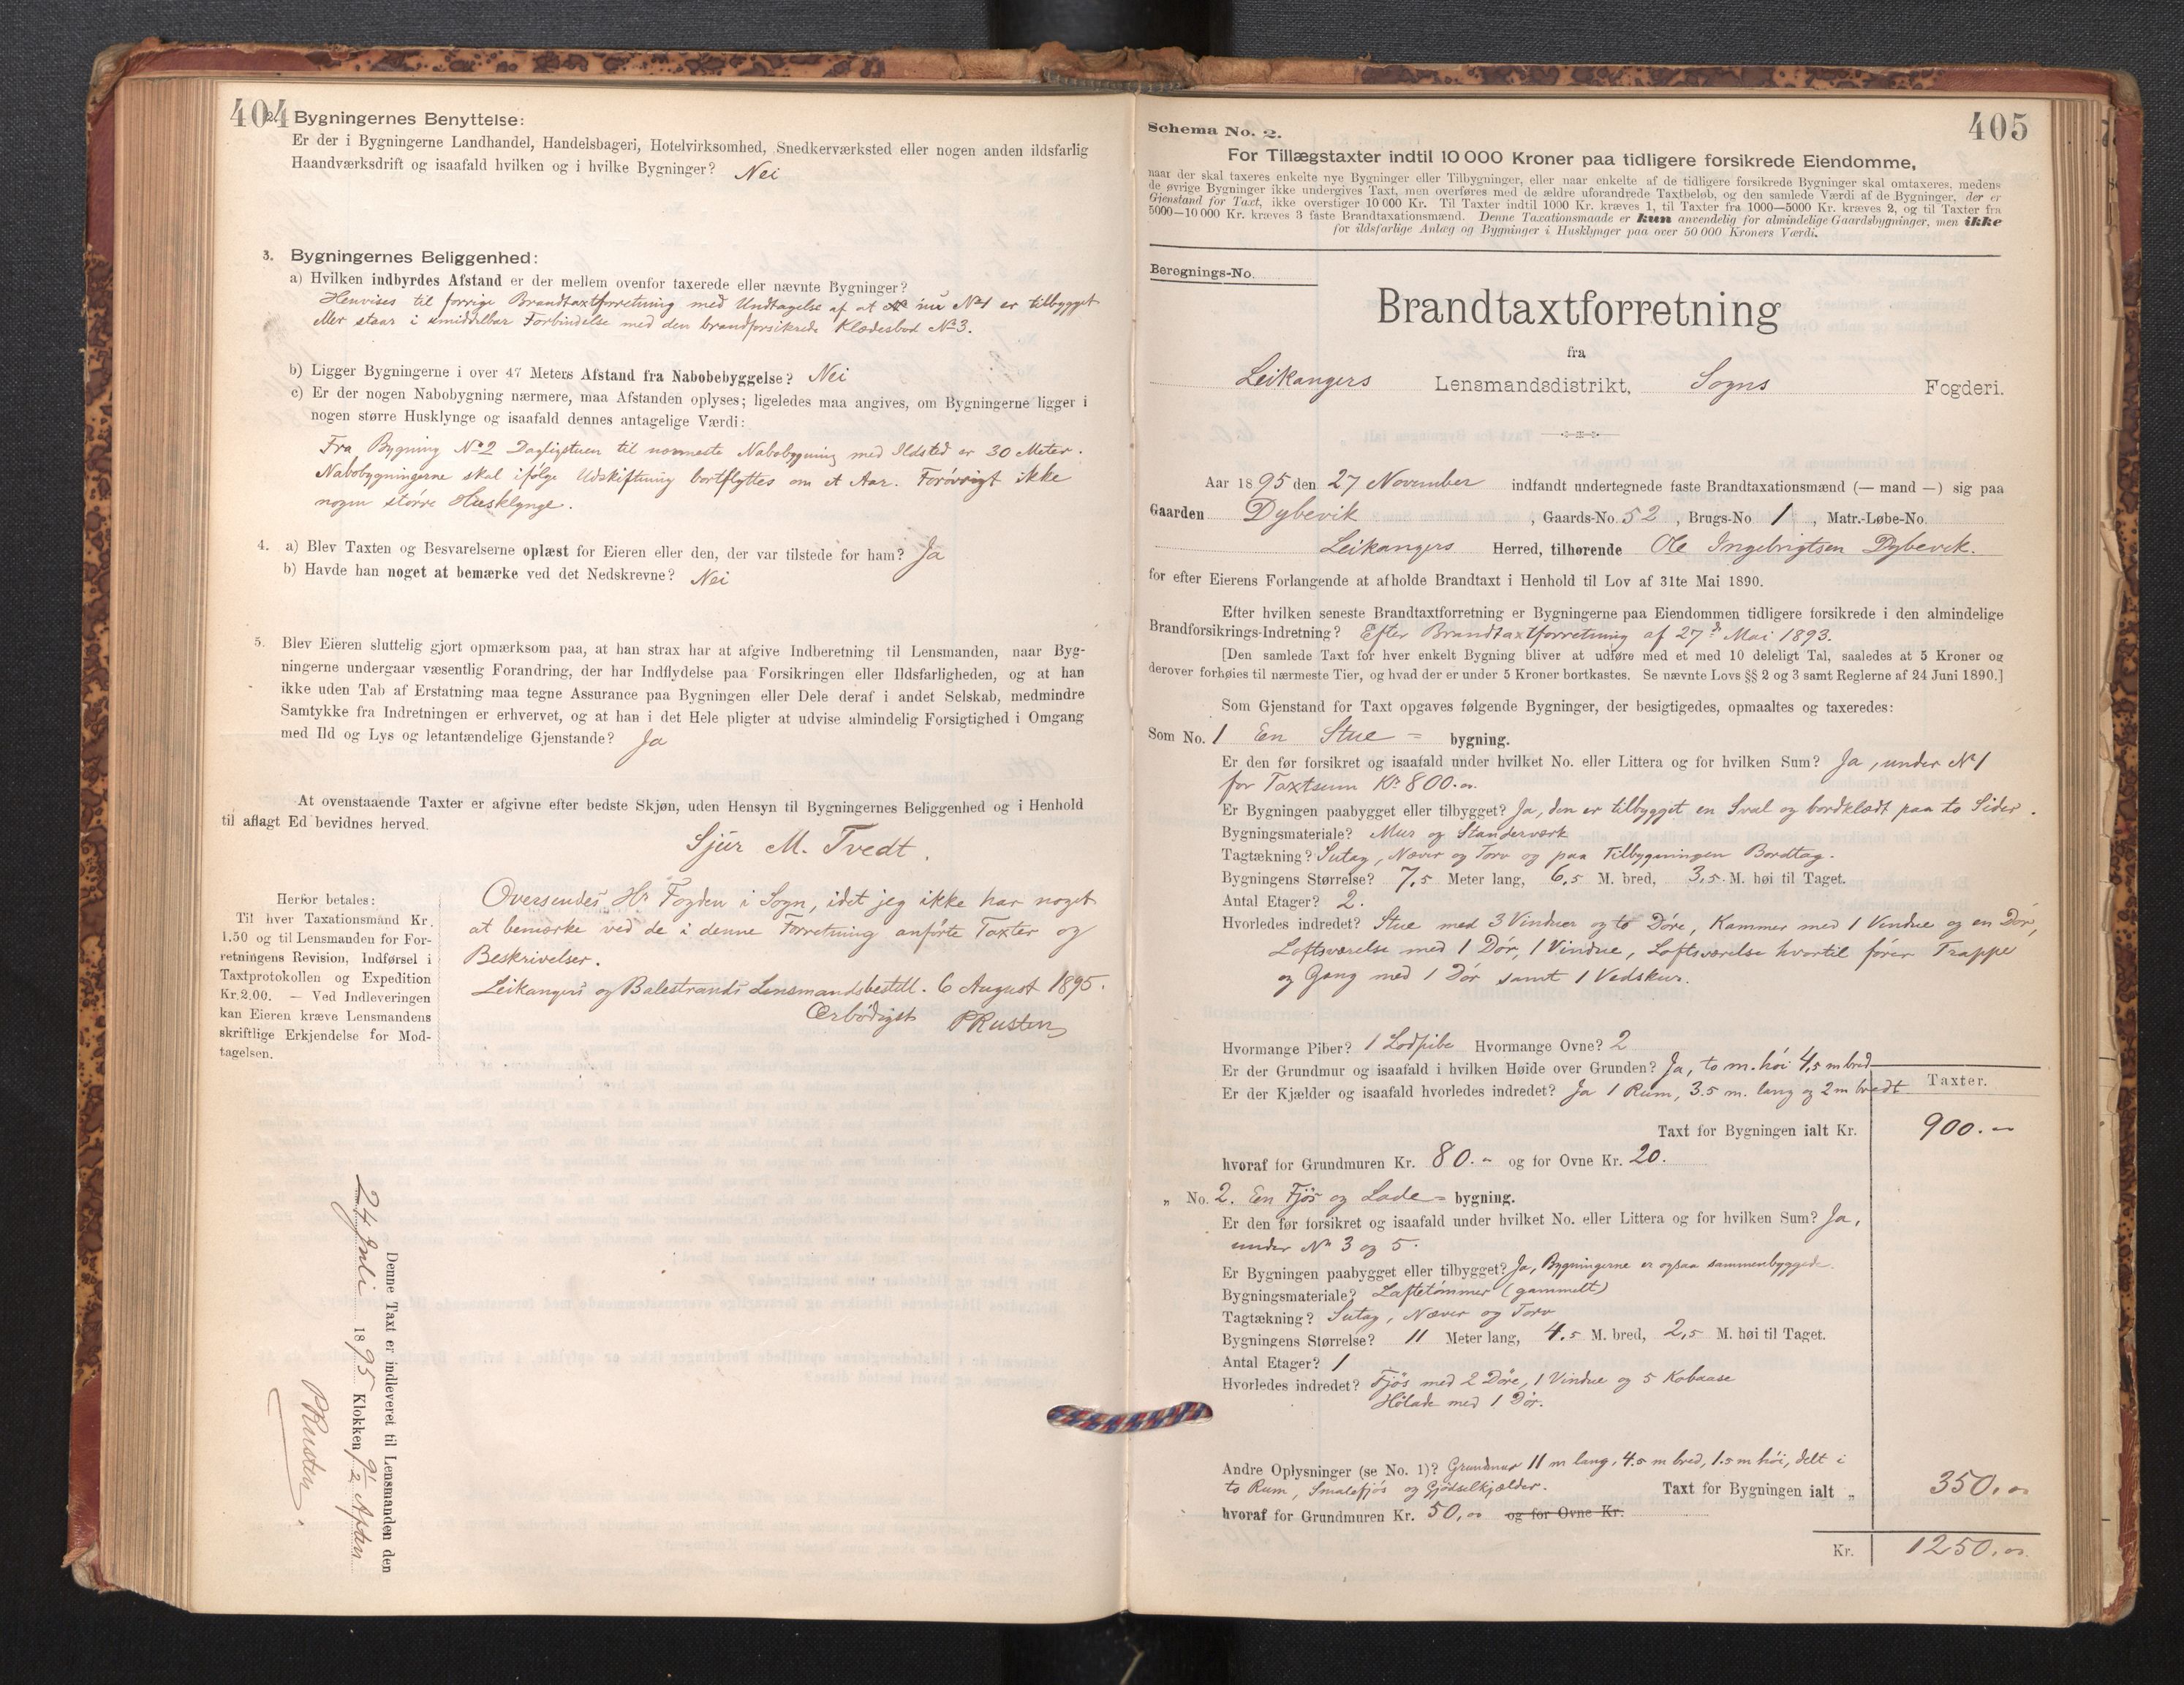 404
2. Bygningernes Benyttelse:
Er der i Bygningerne Landhandel, Handelsbageri, Hotelvirksomhed, Snedkerværksted eller nogen anden ildsfarlig
Haandværksdrift og isaafald hvilken og i hvilke Bygninger? Nei
3. Bygningernes Beliggenhed:
a) Hvilken indbyrdes Afstand er der mellem ovenfor taxerede eller nævnte Bygninger?
Henvises til forrige Brandtaxtforretning med Undtagelse af at nu No 1 er tilbygget
eller staar i umiddelbar Forbindelse med den brandforsikrede Klædesbod No 3.
b) Ligger Bygningerne i over 47 Meters Afstand fra Nabobebyggelse? Nei
c) Er der nogen Nabobygning nærmere, maa Afstanden oplyses; ligeledes maa angives, om Bygningerne ligger i
nogen større Husklynge og isaafald dennes antagelige Værdi:
Fra Bygning No 2 Dagligstuen til nærmeste Nabobygning med Ildsted er 30 Meter.
Nabobygningerne skal ifølge Udskiftning bortflyttes om et Aar. Forøvrigt ikke
nogen større Husklynge.
4. a) Blev Taxten og Besvarelserne oplæst for Eieren eller den, der var tilstede for ham? Ja
b) Havde han noget at bemærke ved det Nedskrevne? Nei
5. Blev Eieren sluttelig gjort opmærksom paa, at han strax har at afgive Indberetning til Lensmanden, naar Byg-
ningerne undergaar væsentlig Forandring, der har Indflydelse paa Forsikringen eller Ildsfarligheden, og at han
ikke uden Tab af Erstatning maa tegne Assurance paa Bygningen eller Dele deraf i andet Selskab, medmindre
Samtykke fra Indretningen er erhvervet, og at han i det Hele pligter at udvise almindelig Forsigtighed i Omgang
med Ild og Lys og letantændelige Gjenstande? Ja
At ovenstaaende Taxter er afgivne efter bedste Skjøn, uden Hensyn til Bygningernes Beliggenhed og i Henhold
til aflagt Ed bevidnes herved.
Sjur M. Tvedt.
Herfor betales:
Til hver Taxationsmand Kr.
1.50 og til Lensmanden for For-
retningens Revision, Indførsel i
Taxtprotokollen og Expedition
Kr. 2.00. — Ved Indleveringen
kan Eieren kræve Lensmandens
skriftlige Erkjendelse for Mod-
tagelsen.
Oversendes Hr Fogden i Sogn, idet jeg ikke har noget
at bemærke ved de i denne Forretning anførte Taxter og
Beskrivelser.
Leikangers og Balestrands Lensmandsbestill. 6 August 1895.
Ærbødigst PRusten
Denne Taxt er indleveret til Lensmanden den
24 Juli 1895 Klokken 9 1/2 Aften
PRusten
405
Schema No. 2.
For Tillægstaxter indtil 10 000 Kroner paa tidligere forsikrede Eiendomme,
naar der skal taxeres enkelte nye Bygninger eller Tilbygninger, eller naar enkelte af de tidligere forsikrede Bygninger skal omtaxeres, medens
de øvrige Bygninger ikke undergives Taxt, men overføres med de ældre uforandrede Taxtbeløb, og den samlede Værdi af de Bygninger, der er
Gjenstand for Taxt, ikke overstiger 10 000 Kr. Til Taxter indtil 1000 Kr. kræves 1, til Taxter fra 1000—5000 Kr. kræves 2, og til Taxter fra
5000—10 000 Kr. kræves 3 faste Brandtaxationsmænd. Denne Taxationsmaade er kun anvendelig for almindelige Gaardsbygninger, men ikke
for ildsfarlige Anlæg og Bygninger i Husklynger paa over 50 000 Kroners Værdi.
Beregnings-No.
Brandtaxtforretning
fra
Leikangers Lensmandsdistrikt, Sogns Fogderi.
Aar 1895 den 27 November indfandt undertegnede faste Brandtaxationsmænd (— mand —) sig paa
Gaarden Dybevik, Gaards-No. 52, Brugs-No 1, Matr.-Løbe-No.
Leikangers Herred, tilhørende Ole Ingebrigtsen Dybevik.
for efter Eierens Forlangende at afholde Brandtaxt i Henhold til Lov af 31te Mai 1890.
Efter hvilken seneste Brandtaxtforretning er Bygningerne paa Eiendommen tidligere forsikrede i den almindelige
Brandforsikrings-Indretning? Efter Brandtaxtforretning af 27de Mai 1893.
[Den samlede Taxt for hver enkelt Bygning bliver at udføre med et med 10 deleligt Tal, saaledes at 5 Kroner og
derover forhøies til nærmeste Tier, og hvad der er under 5 Kroner bortkastes. Se nævnte Lovs §§ 2 og 3 samt Reglerne af 24 Juni 1890.]
Som Gjenstand for Taxt opgaves følgende Bygninger, der besigtigedes, opmaaltes og taxeredes:
Som No. 1 En Stue = bygning.
Er den før forsikret og isaafald under hvilket No. eller Littera og for hvilken Sum? Ja, under No 1
for Taxtsum Kr 800.00
Er Bygningen paabygget eller tilbygget? Ja, den er tilbygget en Sval og bordklædt paa to Sider.
Bygningsmateriale? Mur og Standerværk
Tagtækning? Sutag, Næver og Torv og paa Tilbygningen Bordtag.
Bygningens Størrelse? 7,5 Meter lang, 6,5 M. bred, 3,5 M. høi til Taget.
Antal Etager? 2.
Hvorledes indredet? Stue med 3 Vinduer og to Døre, Kammer med 1 Vindue og en Dør,
Loftsværelse med 1 Dør, 1 Vindue, Loftsværelse hvortil fører Trappe
og Gang med 1 Dør samt 1 Vedskur.
Hvormange Piber? 1 Lodpibe Hvormange Ovne? 2
Er der Grundmur og isaafald i hvilken Høide over Grunden? Ja, to m. høi 4,5 m bred
Er der Kjælder og isaafald hvorledes indredet? Ja 1 Rum, 3.5 m. lang og 2 m bredt
Taxter.
Taxt for Bygningen ialt Kr. 900.-
hvoraf for Grundmuren Kr. 80.- og for Ovne Kr. 20.
" No. 2. En Fjøs og Lade = bygning.
Er den før forsikret og isaafald under hvilket No. eller Littera og for hvilken Sum? Ja,
under No 3 og 5.
Er Bygningen paabygget eller tilbygget? Ja, Bygningerne er ogsaa sammenbyggede.
Bygningsmateriale? Laftetømmer (gammelt)
Tagtækning? Sutag, Næver og Torv
Bygningens Størrelse? 11 Meter lang, 4.5 M. bred, 2,5 M. høi til Taget.
Antal Etager? 1
Hvorledes indredet? Fjøs med 2 Døre, 1 Vindue og 5 Kobaase
Hølade med 1 Dør.
Andre Oplysninger (se No. 1)? Grundmur 11 m lang, 4.5 m bred, 1.5 m høi, delt i
to Rum, Smalefjøs og Gjødselkjælder. Taxt for Bygningen ialt " 350.00
hvoraf for Grundmuren Kr. 50,00 og for Ovne Kr.
Kr. 1250.00